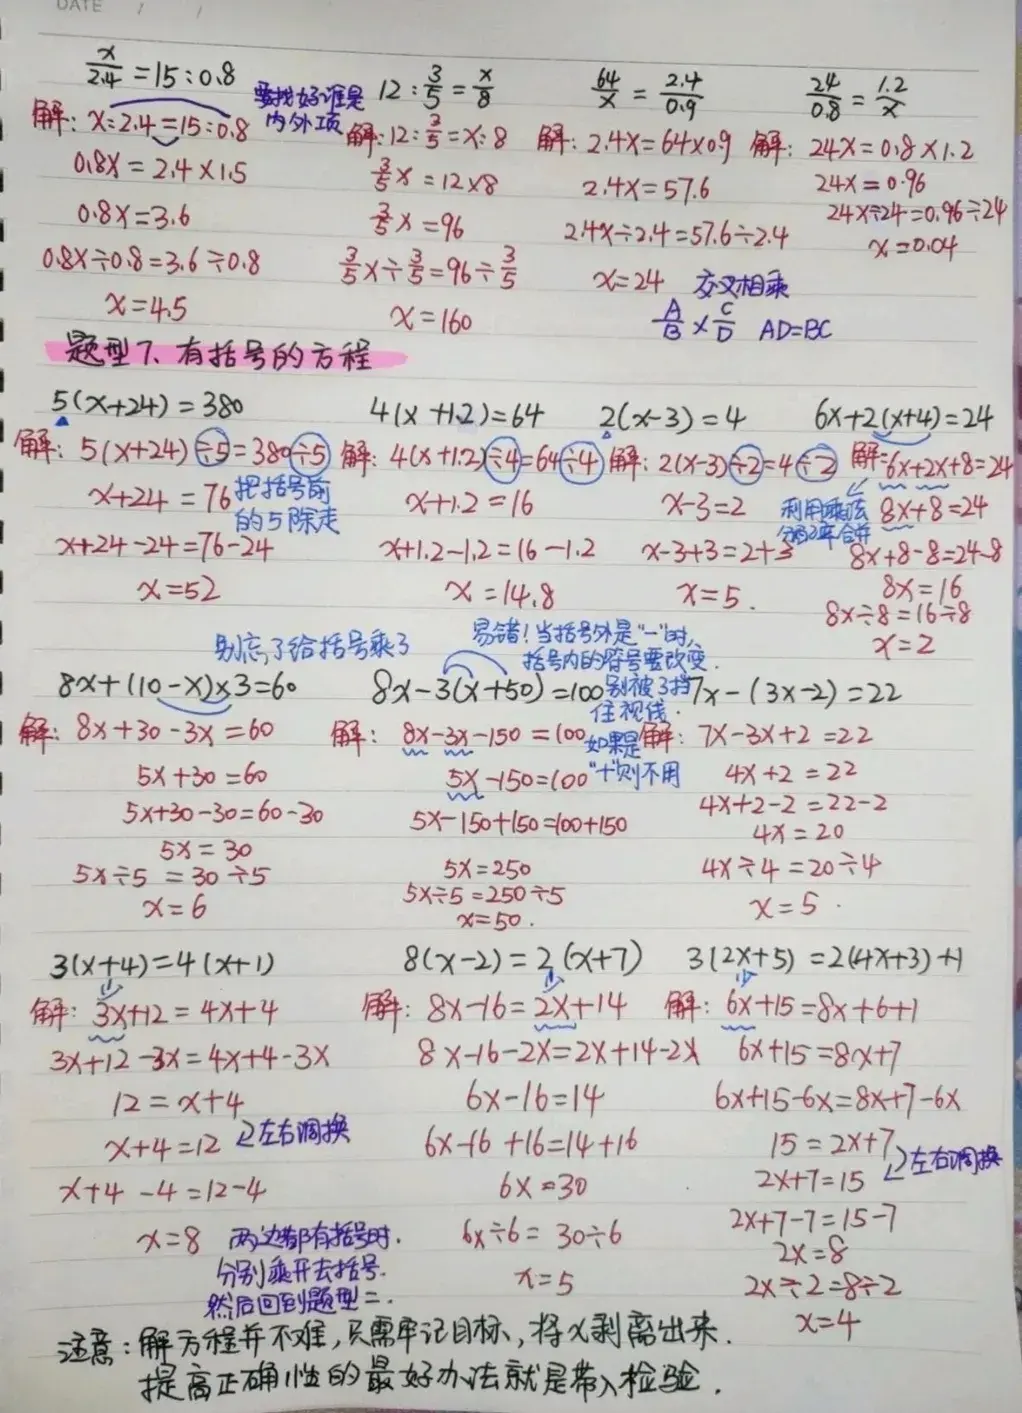 DATE / /
x/2.4 = 15:0.8
12:3/5 = x/8
64/x = 2.4/0.9
24/0.8 = 1.2/x
要找好谁是
内外项
解: x:2.4=15:0.8
0.8x=2.4×1.5
0.8x=3.6
0.8x÷0.8=3.6÷0.8
x=4.5
解:12:3/5=x:8
3/5x=12×8
3/5x=96
3/5x÷3/5=96÷3/5
x=160
解: 2.4x=64×0.9
2.4x=57.6
2.4x÷2.4=57.6÷2.4
x=24
解: 24x=0.8×1.2
24x=0.96
24x÷24=0.96÷24
x=0.04
交叉相乘
A/B × C/D AD=BC
题型7、有括号的方程
5(x+24)=380
解: 5(x+24)÷5=380÷5
x+24=76
把括号前
的5除走
x+24-24=76-24
x=52
4(x+1.2)=64
解: 4(x+1.2)÷4=64÷4
x+1.2=16
x+1.2-1.2=16-1.2
x=14.8
2(x-3)=4
解: 2(x-3)÷2=4÷2
x-3=2
x-3+3=2+3
x=5.
6x+2(x+4)=24
解:6x+2x+8=24
利用乘法
分配率合并
8x+8=24
8x+8-8=24-8
8x=16
8x÷8=16÷8
x=2
别忘了给括号乘了
8x+(10-x)×3=60
解: 8x+30-3x=60
5x+30=60
5x+30-30=60-30
5x=30
5x÷5=30÷5
x=6
易错!当括号外是"-"时,
括号内的符号要改变.
8x-3(x+50)=100
别被3挡
住视线.
如果是
"+"则不用
解: 8x-3x-150=100
5x-150=100
5x-150+150=100+150
5x=250
5x÷5=250÷5
x=50.
7x-(3x-2)=22
解: 7x-3x+2=22
4x+2=22
4x+2-2=22-2
4x=20
4x÷4=20÷4
x=5.
3(x+4)=4(x+1)
解: 3x+12=4x+4
3x+12-3x=4x+4-3x
12=x+4
x+4=12
左右调换
x+4-4=12-4
x=8
两边都有括号时.
分别乘开去括号.
然后回到题型二.
8(x-2)=2(x+7)
解: 8x-16=2x+14
8x-16-2x=2x+14-2x
6x-16=14
6x-16+16=14+16
6x=30
6x÷6=30÷6
x=5
3(2x+5)=2(4x+3)+1
解: 6x+15=8x+6+1
6x+15=8x+7
6x+15-6x=8x+7-6x
15=2x+7
2x+7=15
左右调换
2x+7-7=15-7
2x=8
2x÷2=8÷2
x=4
注意:解方程并不难,只需牢记目标,将x剥离出来.
提高正确性的最好办法就是带入检验.